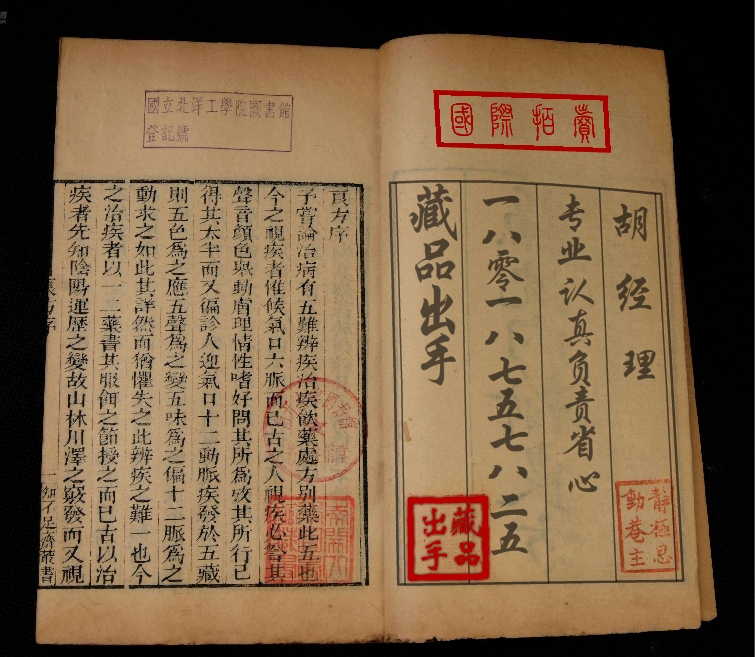 國際拍賣
胡经理
专业认真负责省心
一八零一八七五七八二五
藏品出手
藏品
出手
靜極思
動菴主
國立北洋工學院圖書館
登記號
良方序
予嘗論治病有五難辨疾治疾飲藥處方別藥此五也
今之視疾者惟候氣口六脈而已古之人視疾必察其
聲音顏色舉動膚理情性嗜好問其所為攷其所行已
得其太半而又徧診人迎氣口十二動脈疾發於五藏
則五色為之應五聲為之變五味為之偏十二脈為之
動求之如此其詳然而猶懼失之此辨疾之難一也今
之治疾者以一二藥書其服餌之節授之而已古以治
疾者先知陰陽運歷之變故山林川澤之竅發而又視
良方序
一
知不足齋叢書